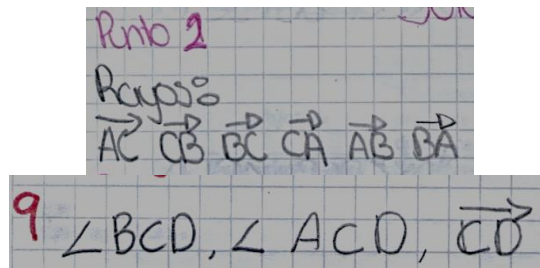 Punto 2
Rayos:
→AC →CB →BC →CA →AB →BA
9 ∠BCD, ∠ACD, →CD